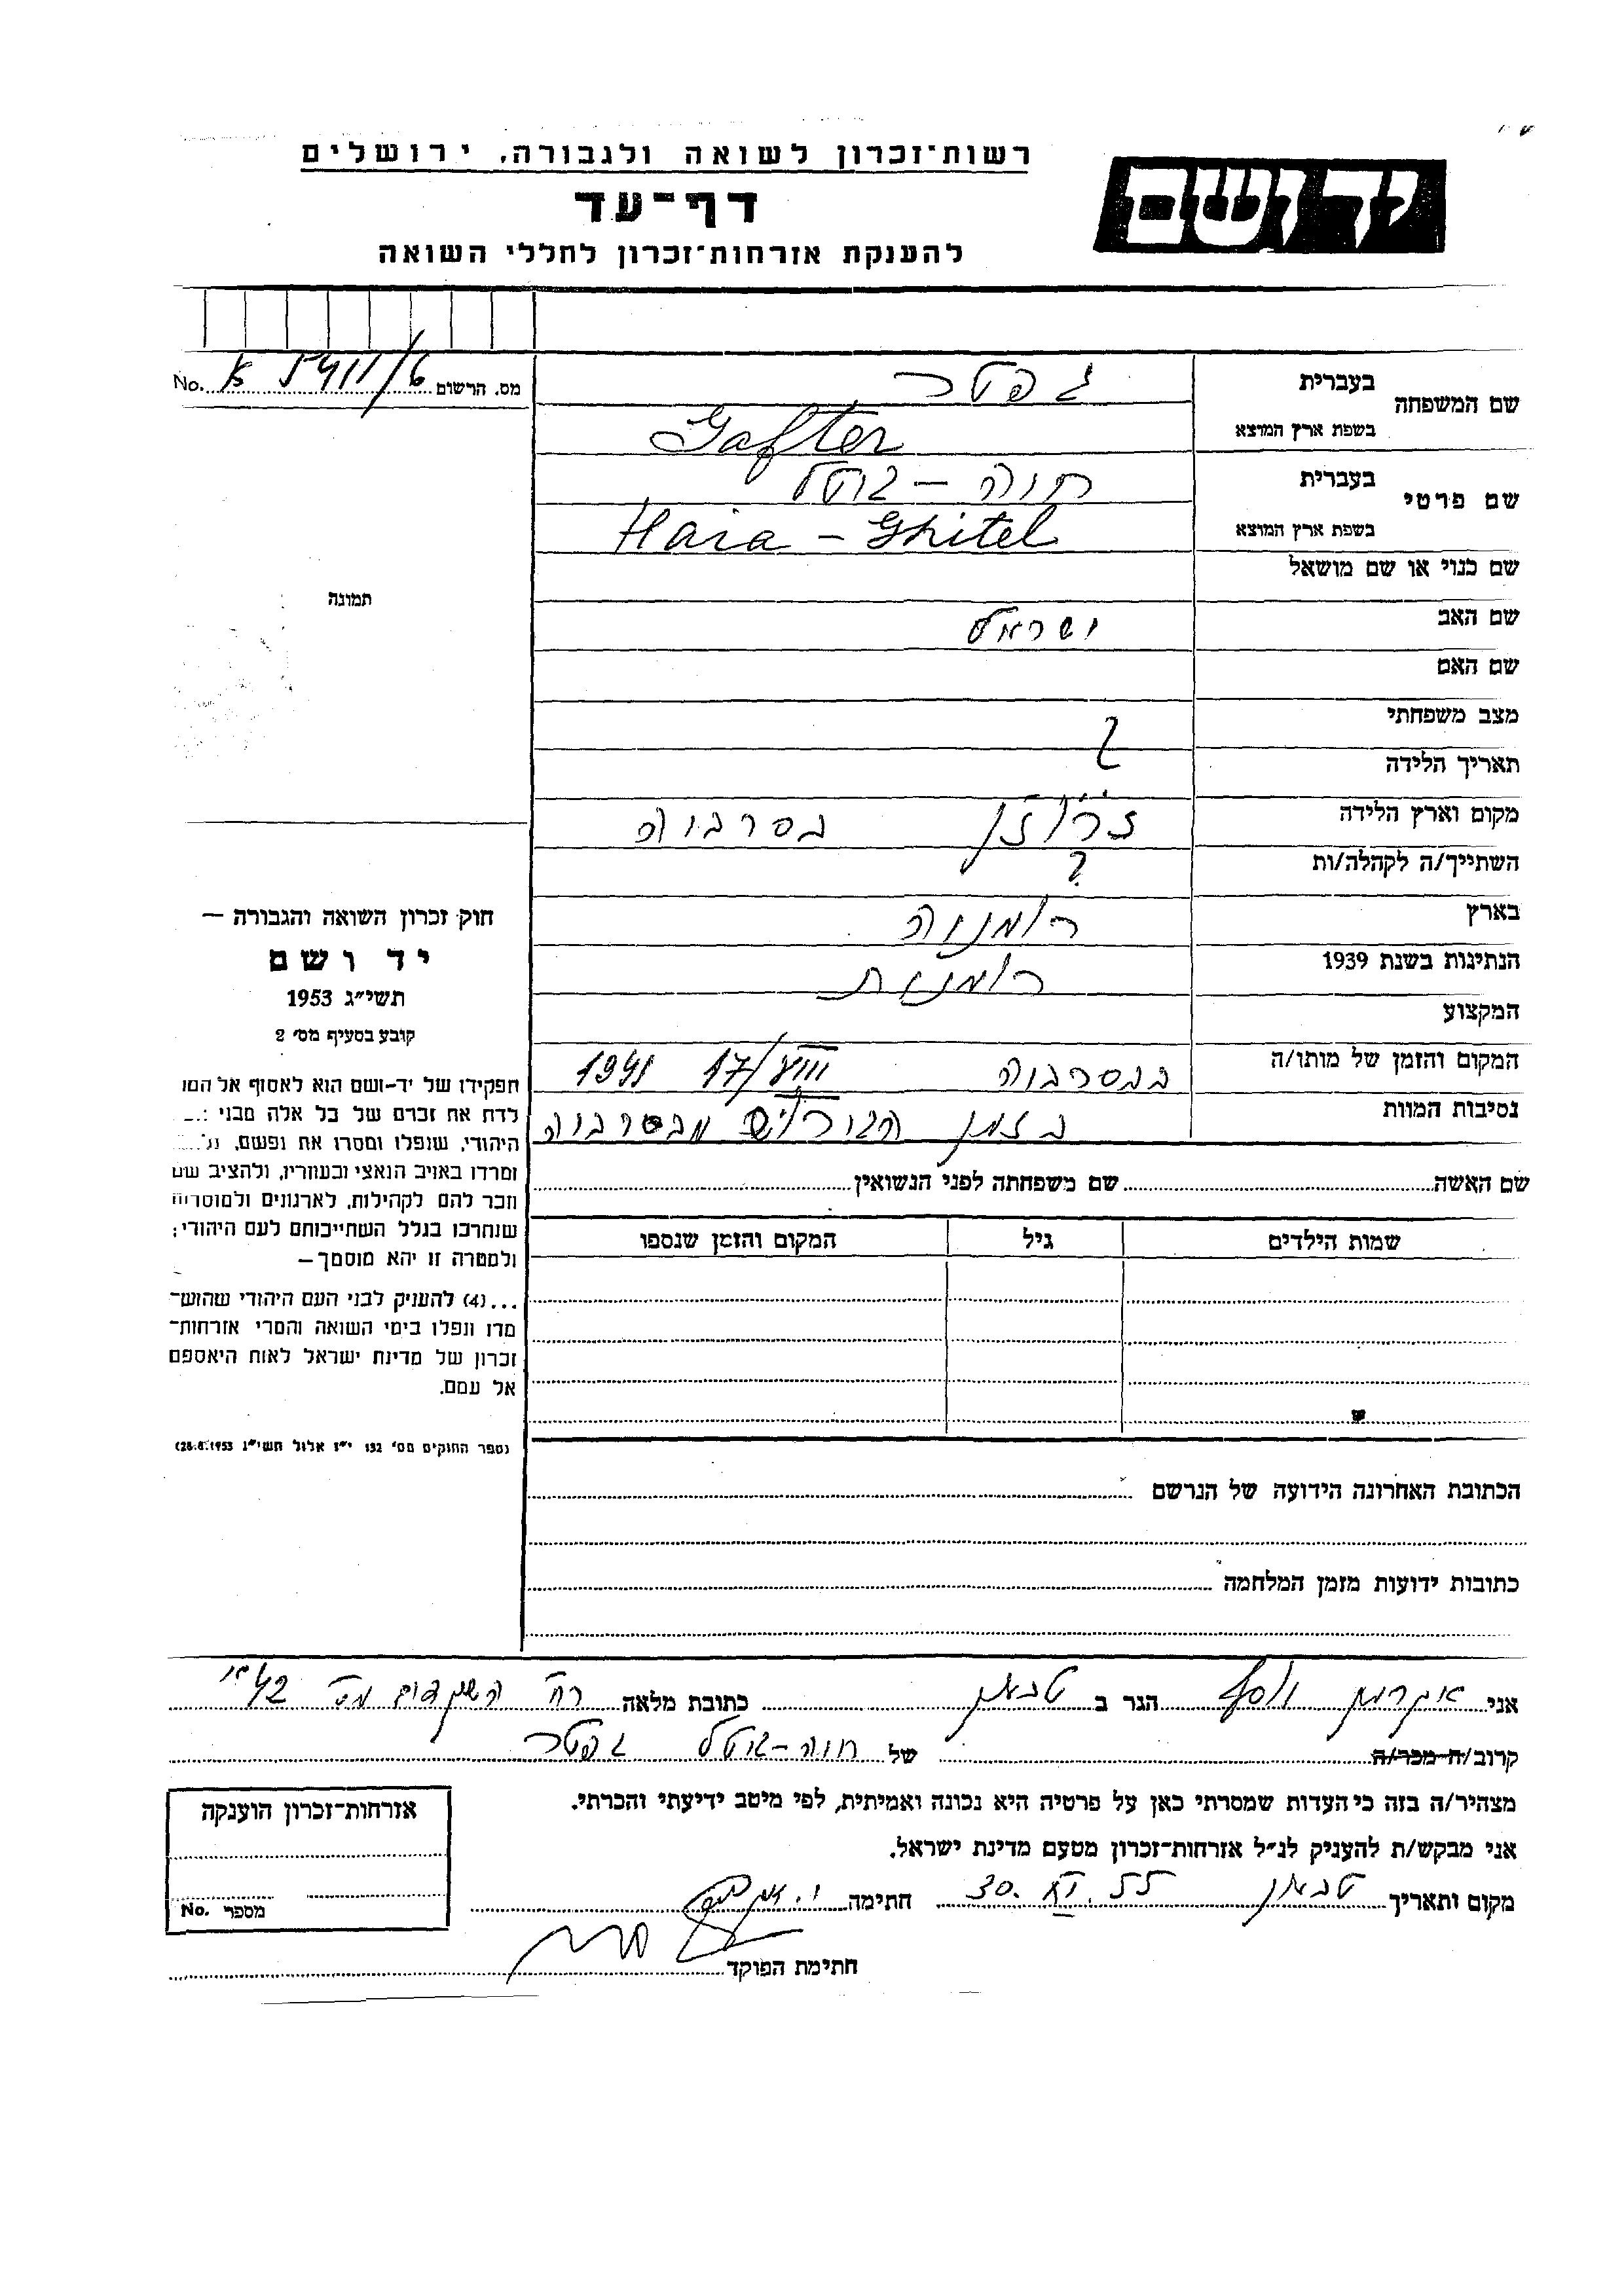 רשות־זכרון לשואה ולגבורה, ירושלים
יד ושם
דף־עד
להענקת אזרחות־זכרון לחללי השואה
מס. הרשום No.
שם המשפחה
בעברית גפטר
בשפת ארץ המוצא Gafter
שם פרטי
בעברית חיה – גיטל
בשפת ארץ המוצא Haia – Ghitel
שם כנוי או שם מושאל
שם האב ישראל
שם האם
מצב משפחתי ?
תאריך הלידה
מקום וארץ הלידה בסרביה
השתייך/ה לקהלה/ות ?
בארץ רומניה
הנתינות בשנת 1939 רומנית
המקצוע
המקום והזמן של מותו/ה בבסרביה 17/VIII 1941
נסיבות המוות בזמן הגורוש מבסרביה
תמונה
חוק זכרון השואה והגבורה –
יד ושם
תשי״ג 1953
קובע בסעיף מס׳ 2
תפקידו של יד-ושם הוא לאסוף אל המו
לדת את זכרם של כל אלה מבני
היהודי, שנפלו ומסרו את נפשם,
ומרדו באויב הנאצי ובעוזריו, ולהציב שם
וזכר להם לקהילות, לארגונים ולמוסדות
שנחרבו בגלל השתייכותם לעם היהודי;
ולמטרה זו יהא מוסמך–
...(4) להעניק לבני העם היהודי שהוש־
מדו ונפלו בימי השואה והמרי אזרחות־
זכרון של מדינת ישראל לאות היאספם
אל עמם.
(ספר החוקים מס׳ 132 י״ז אלול תשי״ג 28.8.1953)
שם האשה שם משפחתה לפני הנשואין
שמות הילדים גיל המקום והזמן שנספו
הכתובת האחרונה הידועה של הנרשם
כתובות ידועות מזמן המלחמה
אני יוסף הגר ב טבעון כתובת מלאה רח׳ השקדים מס׳ 42
קרוב/ה מכר/ה של חיה-גיטל גפטר
מצהיר/ה בזה כי העדות שמסרתי כאן על פרטיה היא נכונה ואמיתית, לפי מיטב ידיעתי והכרתי.
אני מבקש/ת להעניק לנ״ל אזרחות־זכרון מטעם מדינת ישראל.
מקום ותאריך טבעון 30. חתימה
חתימת הפוקד
אזרחות־זכרון הוענקה
מספר No.